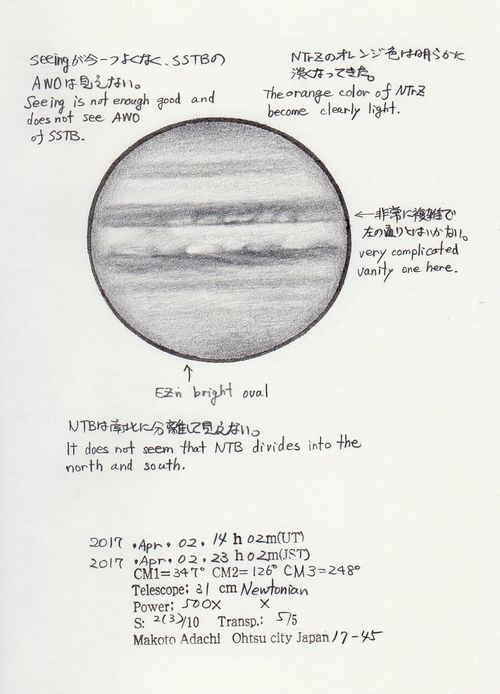 seeingが今一つよくなく、SSTBの
AWOは見えない。
Seeing is not enough good and
does not see AWO
of SSTB.
NTrZのオレンジ色は明らかに
淡くなってきた。
The orange color of NTrZ
become clearly light.
←非常に複雑で
左の通りとはいかない。
very complicated
vanity one here.
↑
EZn bright oval
NTBは南北に分離して見えない。
It does not seem that NTB divides into the
north and south.
2017 .Apr. 02, 14 h 02m(UT)
2017 .Apr. 02, 23 h 02m(JST)
CM1=347° CM2=126° CM3=248°
Telescope: 31 cm Newtonian
Power; 500X X
S: 2(3)/10 Transp.: 5/5
Makoto Adachi Ohtsu city Japan 17-45